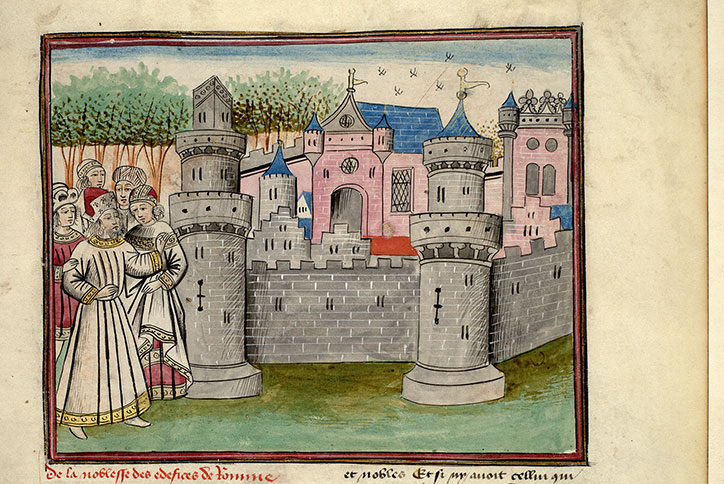 De la noblesse des edefices de Romme
et nobles Et si ny auoit cellui qui